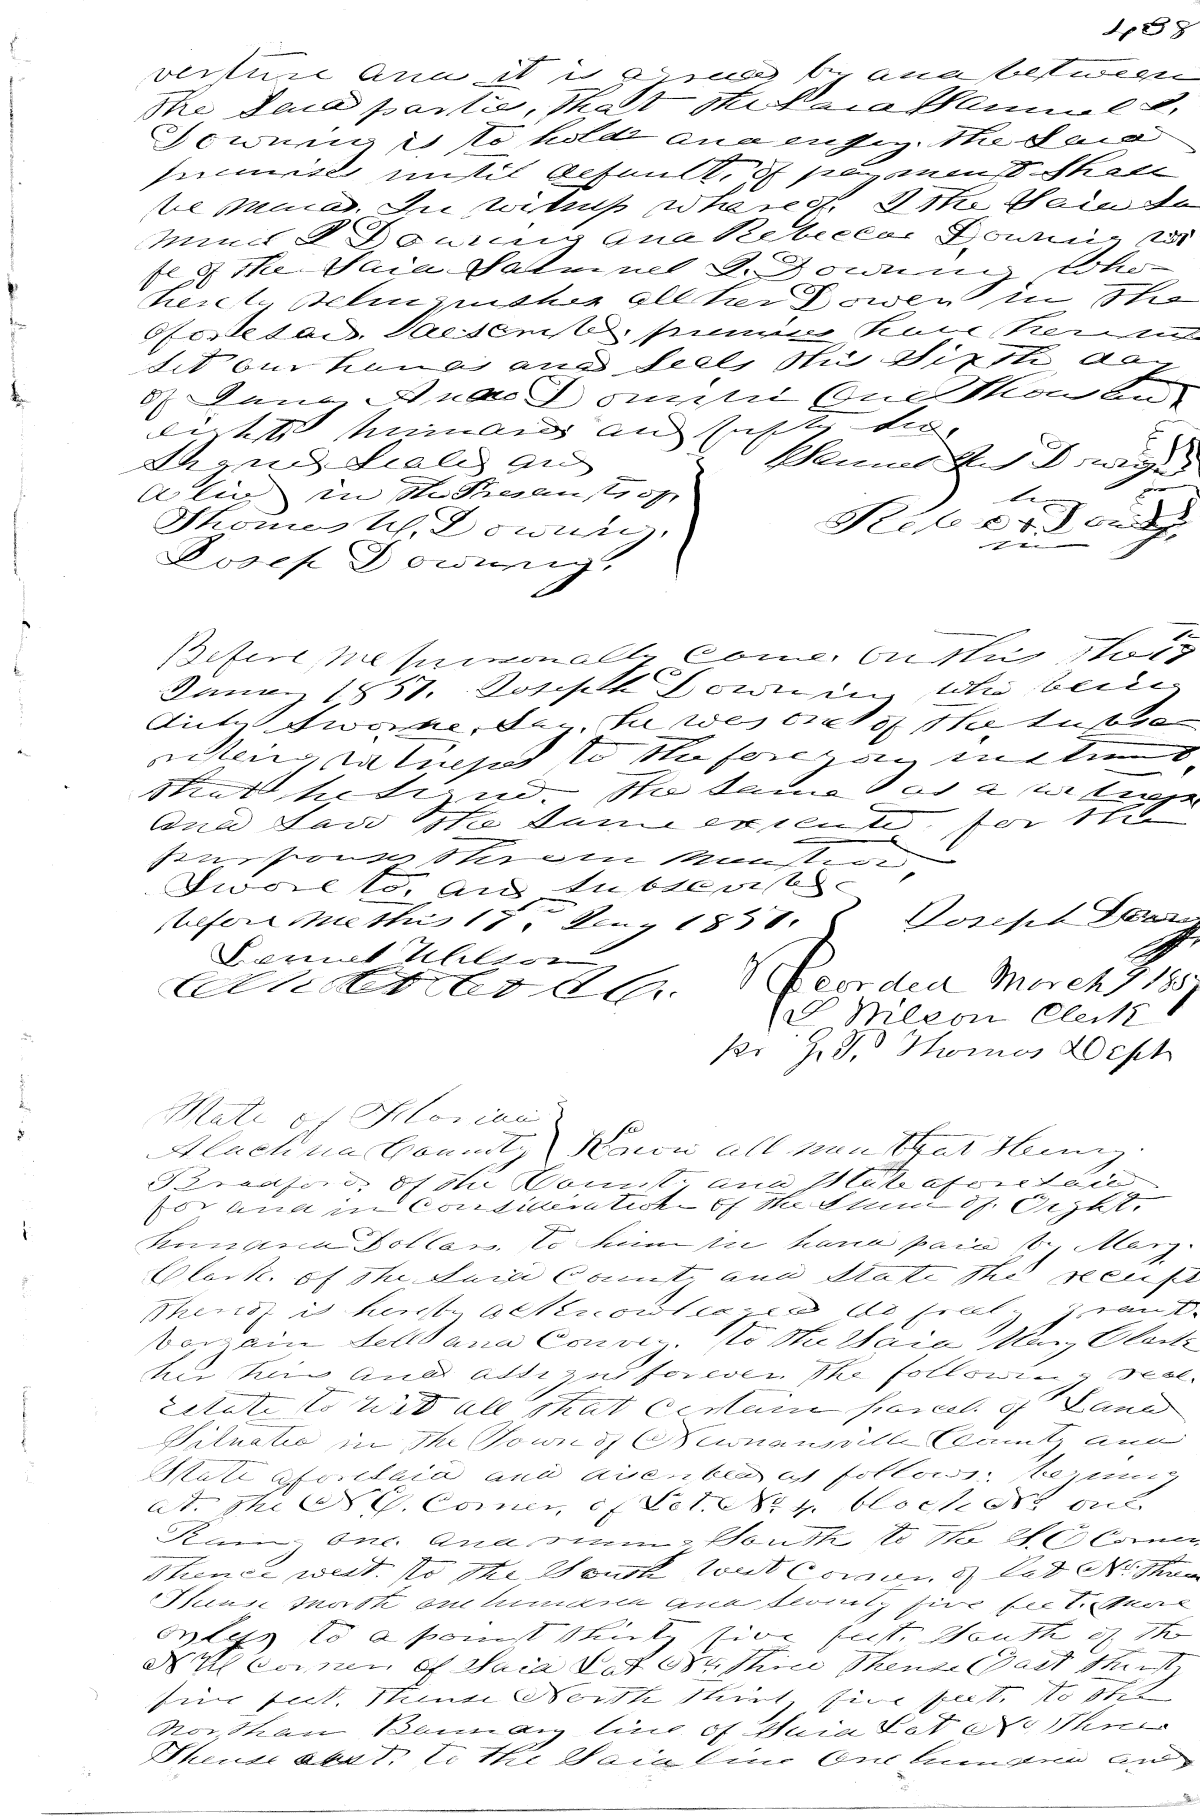 438
verture and it is agreed by and between
the Said parties, that the Said Samuel S.
Downing is to hold and enjoy. the Said
premises until default, of payment Shall
be made. In witness whareof. I the Said Sa
muel S Downing and Rebecca Downing wi
fe of the Said Samuel S. Downing who
hereby relinquishes all her Dower in the
aforesaid. described. premises have hereunto
set our hands and Seals this Sixth day
of Jany Anno Domini One Thousand
eight hundred and fifty
Signed Sealed and Samuel Downing
in the Presents of,
Thomas W. Downing. her
Josep Downing. Rebe x Downing
Before me personally come. on this the 17
Januay 1857. Joseph Downing who being
duly Sworne, Say, he was one of the Subsc
ribeing witness to the foregoing instrument,
that he signed. the same as a witness
and saw the same executed for the
purposes therein mention,
Swore to, and Subscribed
before me this 17th Jany 1857. Joseph Downing
Lemuel Wilson
Recorded March 9 1857
L Wilson Clerk
pr G. T. Thomas Deph
State of Florida
Alachua County Know all men that Henry.
Bradford. of the County and State aforesaid
for and in Consideration of the Sum of. Eight.
hundred Dollars. to him in hand paid by Mary.
Clark. of the Said County and State the receipt
thereof is hereby acknowledged do freely grant.
bargain Sell and Convey. to the Said Mary Clark
her heirs and assigns forever. the following real.
estate to wit all that certain parcel. of Land
Situated in the Town of Newnansville County and
State aforesaid and discribed as follows: begining
at. the N. E. Corner. of Lot. No. 4. block No. one.
Rang one. and runing South to the S. E Corner
thence west. to the South West Corner. of lot No. three
Thense north one hundred and seventy five feet. more
or less to a point thirty five feet. South of the
N W Corner. of Said Lot No. three thense East thirty
five feet. thense North thirty five feet. to the
northan Bounday line of Said Lot No three
Thense east. to the Said line one hundred and